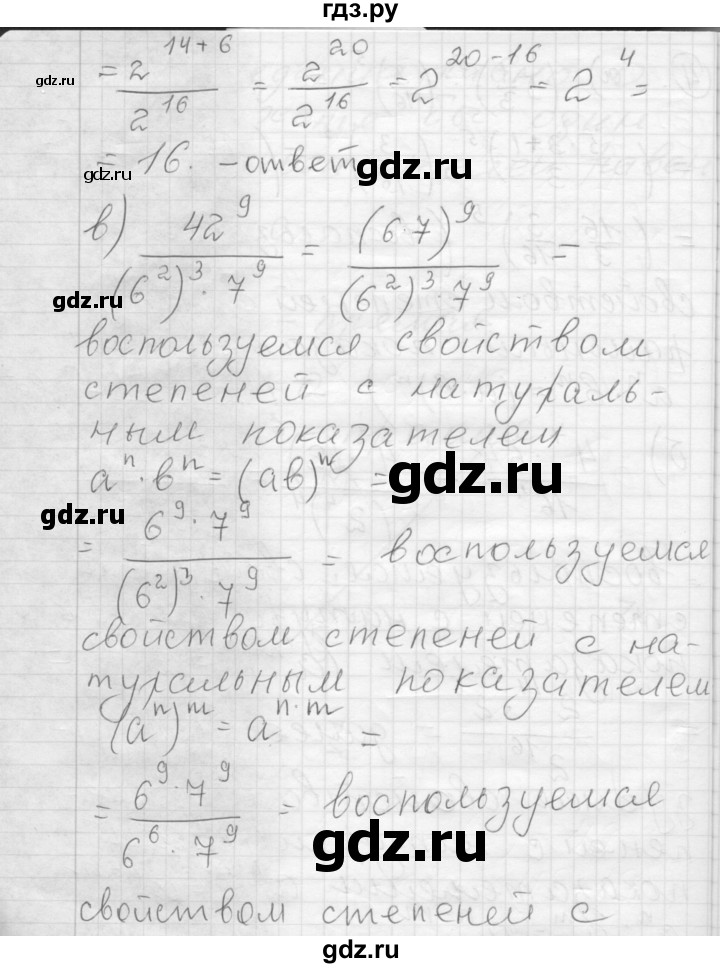 гдз.ру
= 2^(14+6) / 2^16 = 2^20 / 2^16 = 2^(20-16) = 2^4 =
gdz.ru
= 16. - ответ
gdz.ru
gdz.ru
в) 42^9 / ((6^2)^3 · 7^9) = (6·7)^9 / ((6^2)^3 · 7^9) =
gdz.ru
воспользуемся свойством
степеней с натураль-
ным показателем
a^n · b^n = (ab)^n =
gdz.ru
gdz.ru
= 6^9 · 7^9 / ((6^2)^3 · 7^9) = воспользуемся
свойством степеней с на-
туральным показателем
(a^n)^m = a^(n·m) =
= 6^9 · 7^9 / (6^6 · 7^9) = воспользуемся
gdz.ru
свойством степеней с
gdz.ru